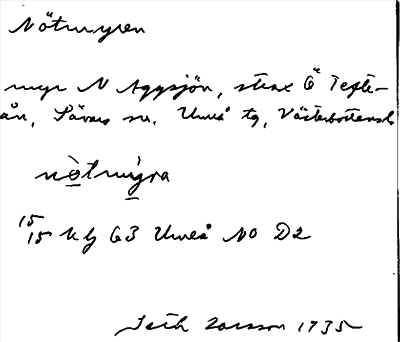 Nötmyren
myr N Aggsjön, strax Ö Tefte-
ån, Sävars sn. Umeå tg, Västerbottens l.
nò̱tmỳ̱ra
15/15 kbl 63 Umeå NO D2
Seth Larsson 1935